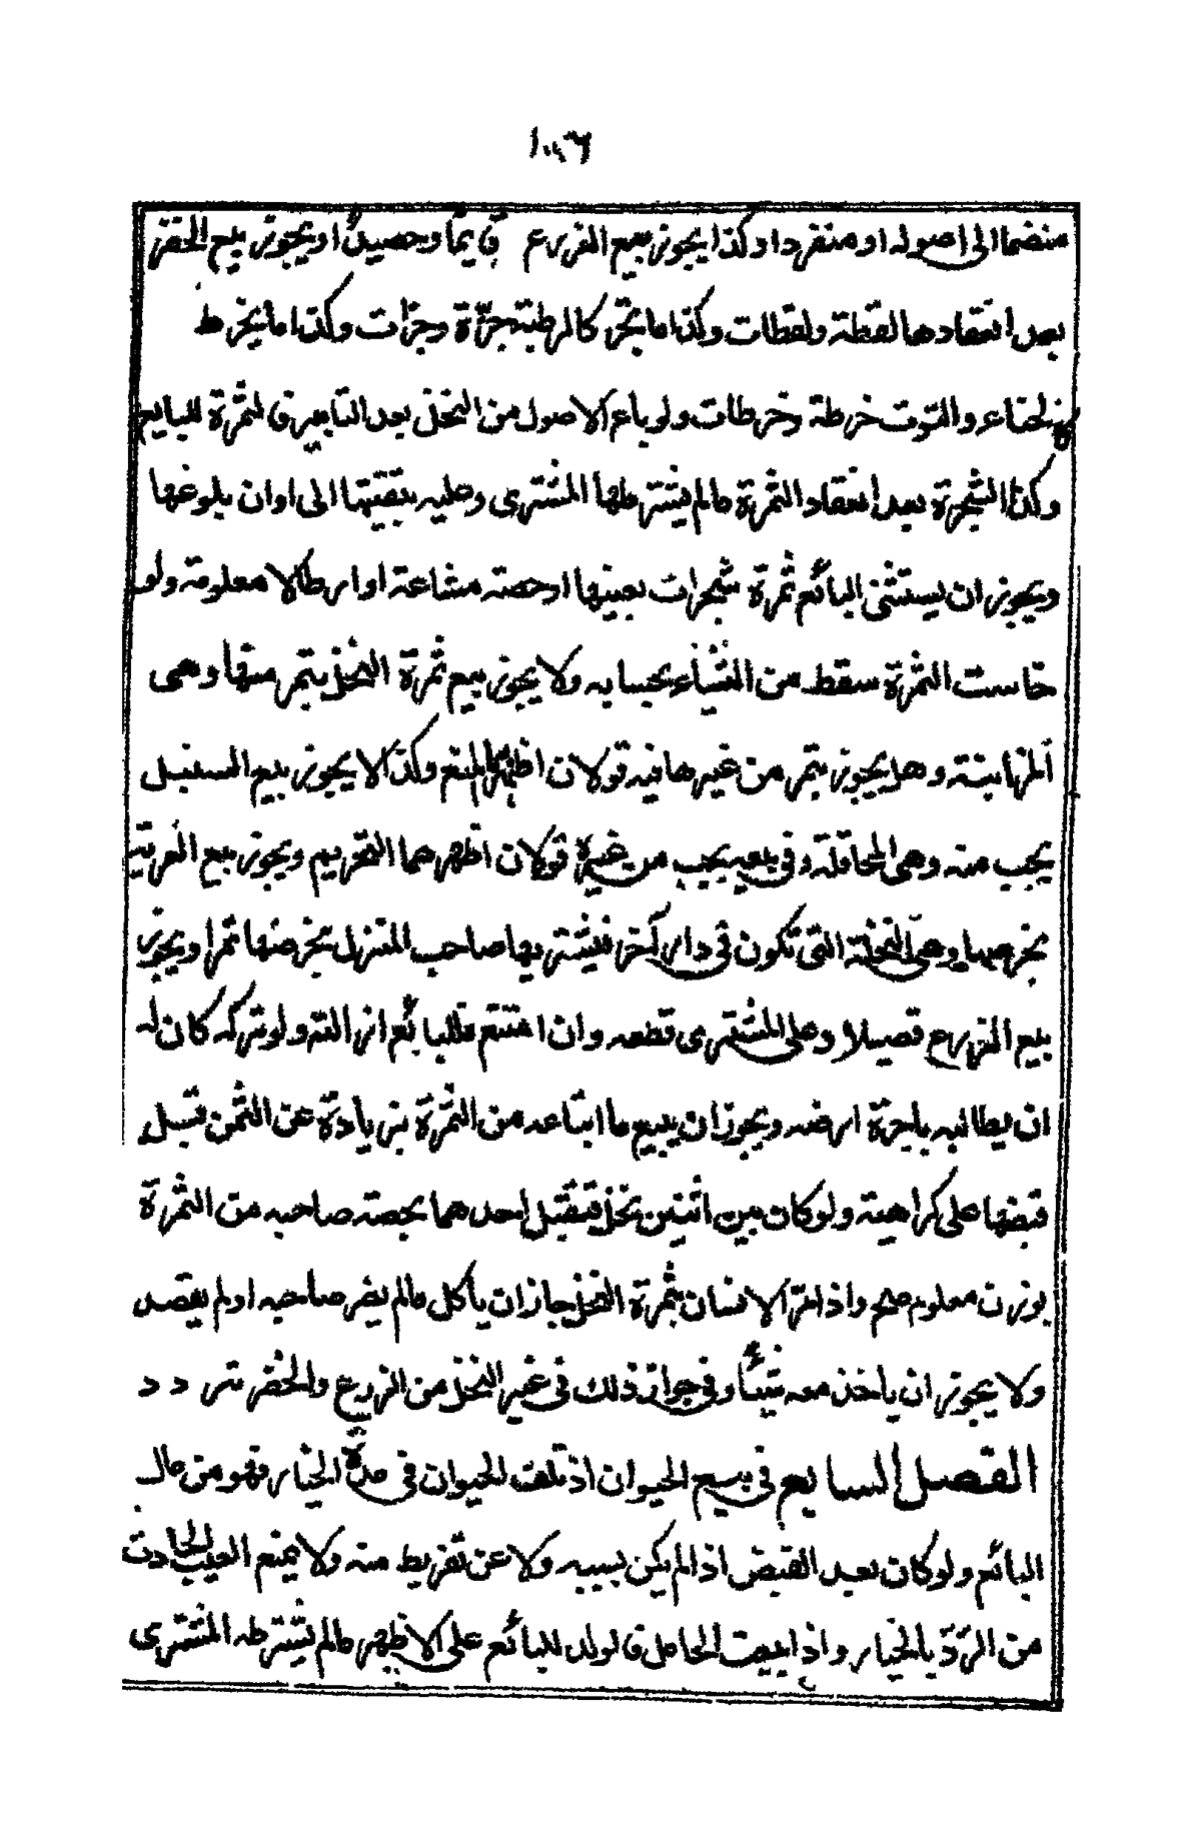 ١٠٠٦
منضما الى اصوله او منفردا وكذا يجوز بيع الزرع قايما وحصيدا ويجوز بيع الخضر
بعد انعقادها لقطة ولقطات وكذا ما يجز كالرطبة جزّة وجزّات وكذا ما يخرط
كالحناء والتوت خرطة وخرطات ولو باع الاصول من النخل بعد التابير فالثمرة للبايع
وكذا الشجرة بعد انعقاد الثمرة مالم يشترطها المشترى وعليه تبقيتها الى اوان بلوغها
ويجوز ان يستثنى البائع ثمرة شجرات بعينها او حصته مشاعة او ارطالا معلومة ولو
خاست الثمرة سقط من الثنياء بحسابه ولا يجوز بيع ثمرة النخل بتمر منها وهى
المزابنة وهل يجوز بتمر من غيرها فيه قولان اظهرهما المنع وكذا لا يجوز بيع السنبل
بحب منه وهى المحاقلة وفى بيعه بحب من غيره قولان اظهرهما التحريم ويجوز بيع العرية
بخرصها وهى النخلة التى تكون فى دار آخر فيشتريها صاحب المنزل بخرصها تمرا ويجوز
بيع الزرع قصيلا وعلى المشترى قطعه وان امتنع فللبائع ازالته ولو تركه كان له
ان يطالبه باجرة ارضه ويجوز ان يبيع ما ابتاعه من الثمرة بزيادة عن الثمن قبل
قبضها على كراهية ولو كان بين اثنين نخل فتقبل احدهما بحصة صاحبه من الثمرة
بوزن معلوم صح واذا مرّ الانسان بثمرة النخل جاز ان ياكل مالم يضر صاحبه او لم يقصد
ولا يجوز ان ياخذ معه شيئا وفى جواز ذلك فى غير النخل من الزرع والخضر تردد
الفصل السابع فى بيع الحيوان اذ تلف الحيوان فى مدة الخيار فهو من مال
البائع ولو كان بعد القبض اذ الم يكن بسببه ولا عن تفريط منه ولا يمنع العيب الحادث
من الردّ بالخيار واذا بيعت الحامل فالولد للبائع على الاظهر مالم يشترطه المشترى